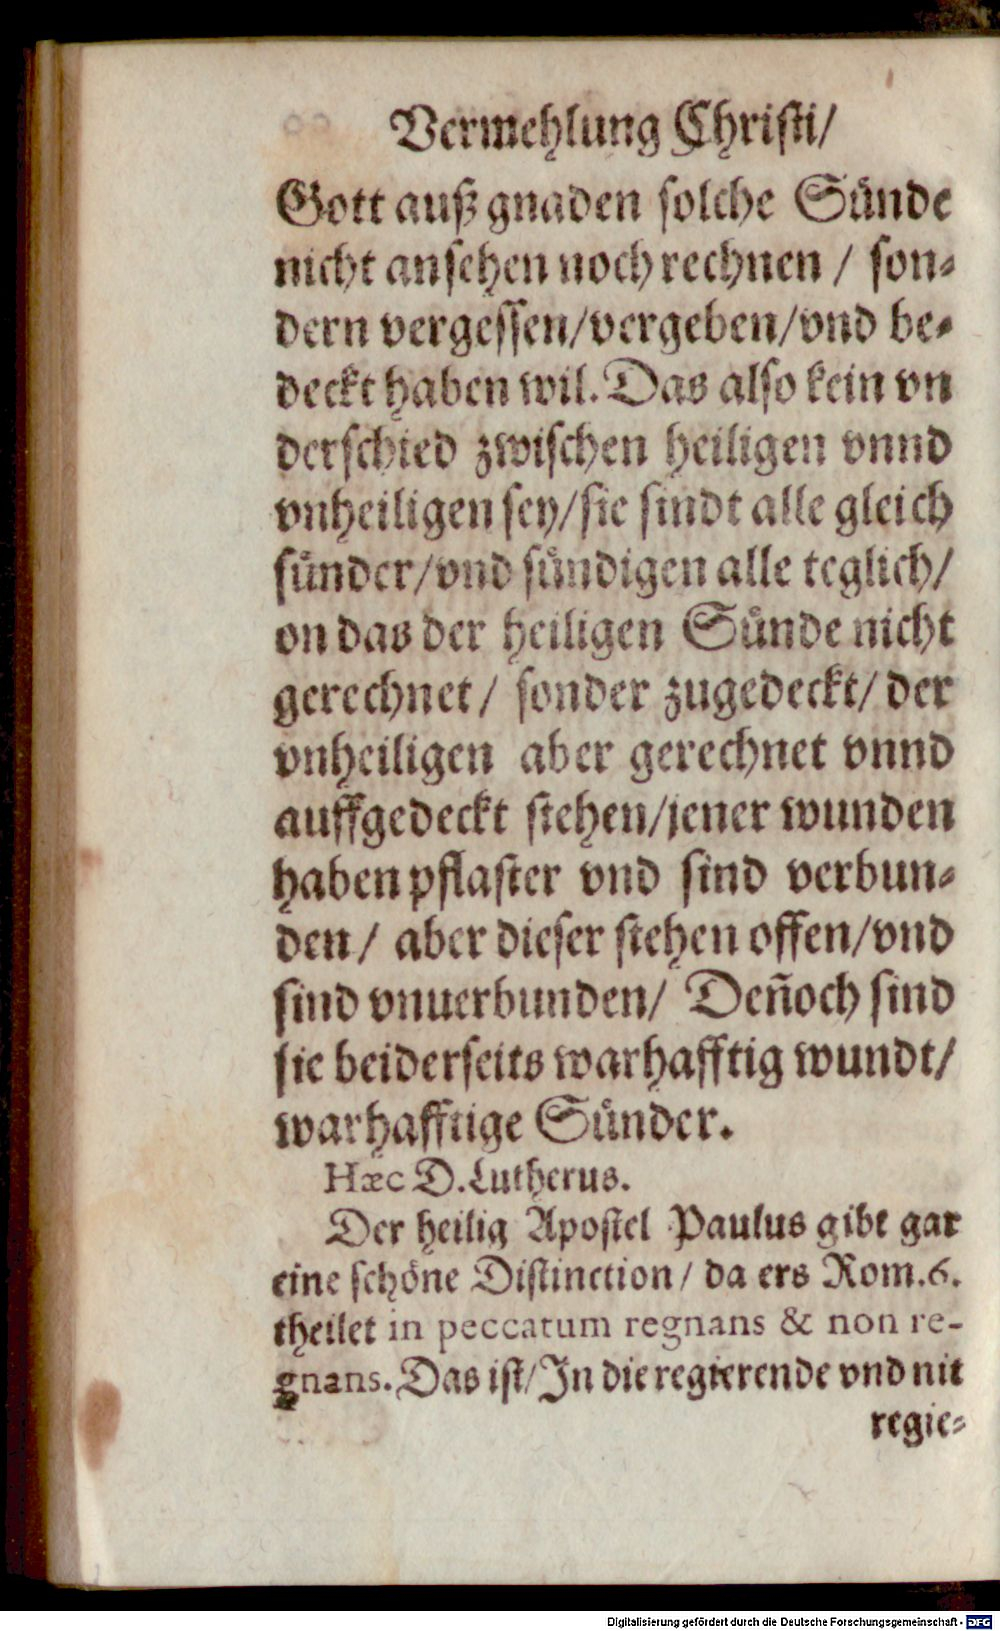 Vermehlung Christi/
Gott auß gnaden solche Sünde
nicht ansehen noch rechnen / son⸗
dern vergessen/vergeben/vnd be⸗
deckt haben wil. Das also kein vn
derschied zwischen heiligen vnnd
vnheiligen sey/sie sindt alle gleich
sünder/vnd sündigen alle teglich/
on das der heiligen Sünde nicht
gerechnet/ sonder zugedeckt/ der
vnheiligen aber gerechnet vnnd
auffgedeckt stehen/jener wunden
haben pflaster vnd sind verbun⸗
den/ aber dieser stehen offen/vnd
sind vnuerbunden/ Deñoch sind
sie beiderseits warhafftig wundt/
warhafftige Sünder.
Hæc D. Lutherus.
Der heilig Apostel Paulus gibt gar
eine schöne Distinction/ da ers Rom.6.
theilet in peccatum regnans & non re-
gnans. Das ist/In die regierende vnd nit
regie⸗
Digitalisierung gefördert durch die Deutsche Forschungsgemeinschaft - DFG